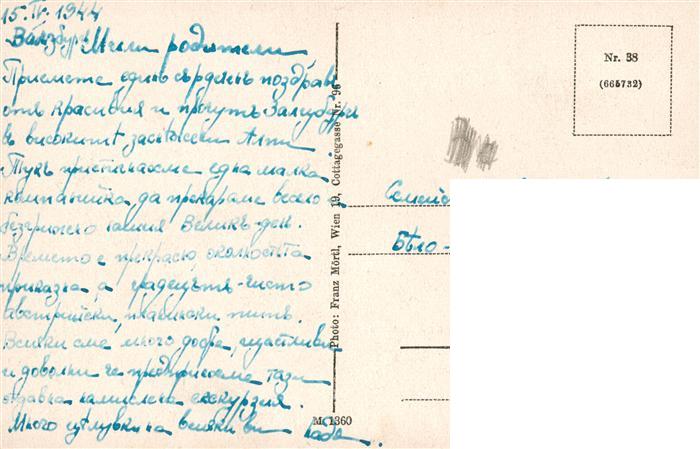 15.IV.1944
Залзбургъ
Мили родители
Приемете единъ сърдеченъ поздравъ
отъ красивия и прочутъ Залцбургъ
въ високитѣ заснежени Алпи
Тукъ пристигнахме една малка
компанийка, да прекараме весело и
безгрижно Великъ-день.
Времето е прекрасно, околностьта
приказна, а градецътъ - чисто
австрийски, планински типъ.
Всички сме много добре, щастливи
и доволни че предприехме тази
отдавна намислена екскурзия.
Много целувки на всички ви
Photo: Franz Mörtl, Wien 19, Cottagegasse Nr. 96
M 1360
Nr. 38
(665732)
Семейс
Бѣло-